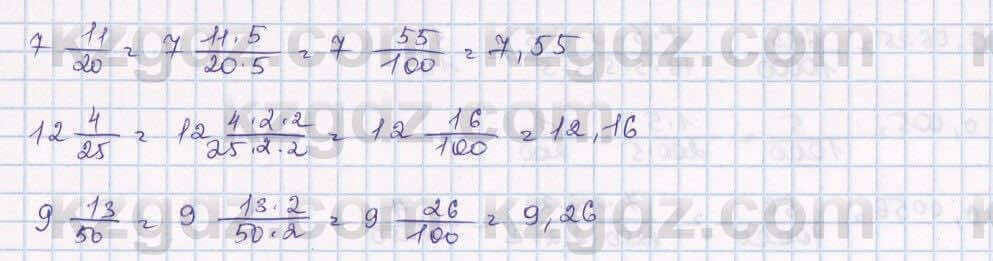 7 11/20 = 7 11·5/20·5 = 7 55/100 = 7,55
12 4/25 = 12 4·2·2/25·2·2 = 12 16/100 = 12,16
9 13/50 = 9 13·2/50·2 = 9 26/100 = 9,26
kzgdz.com